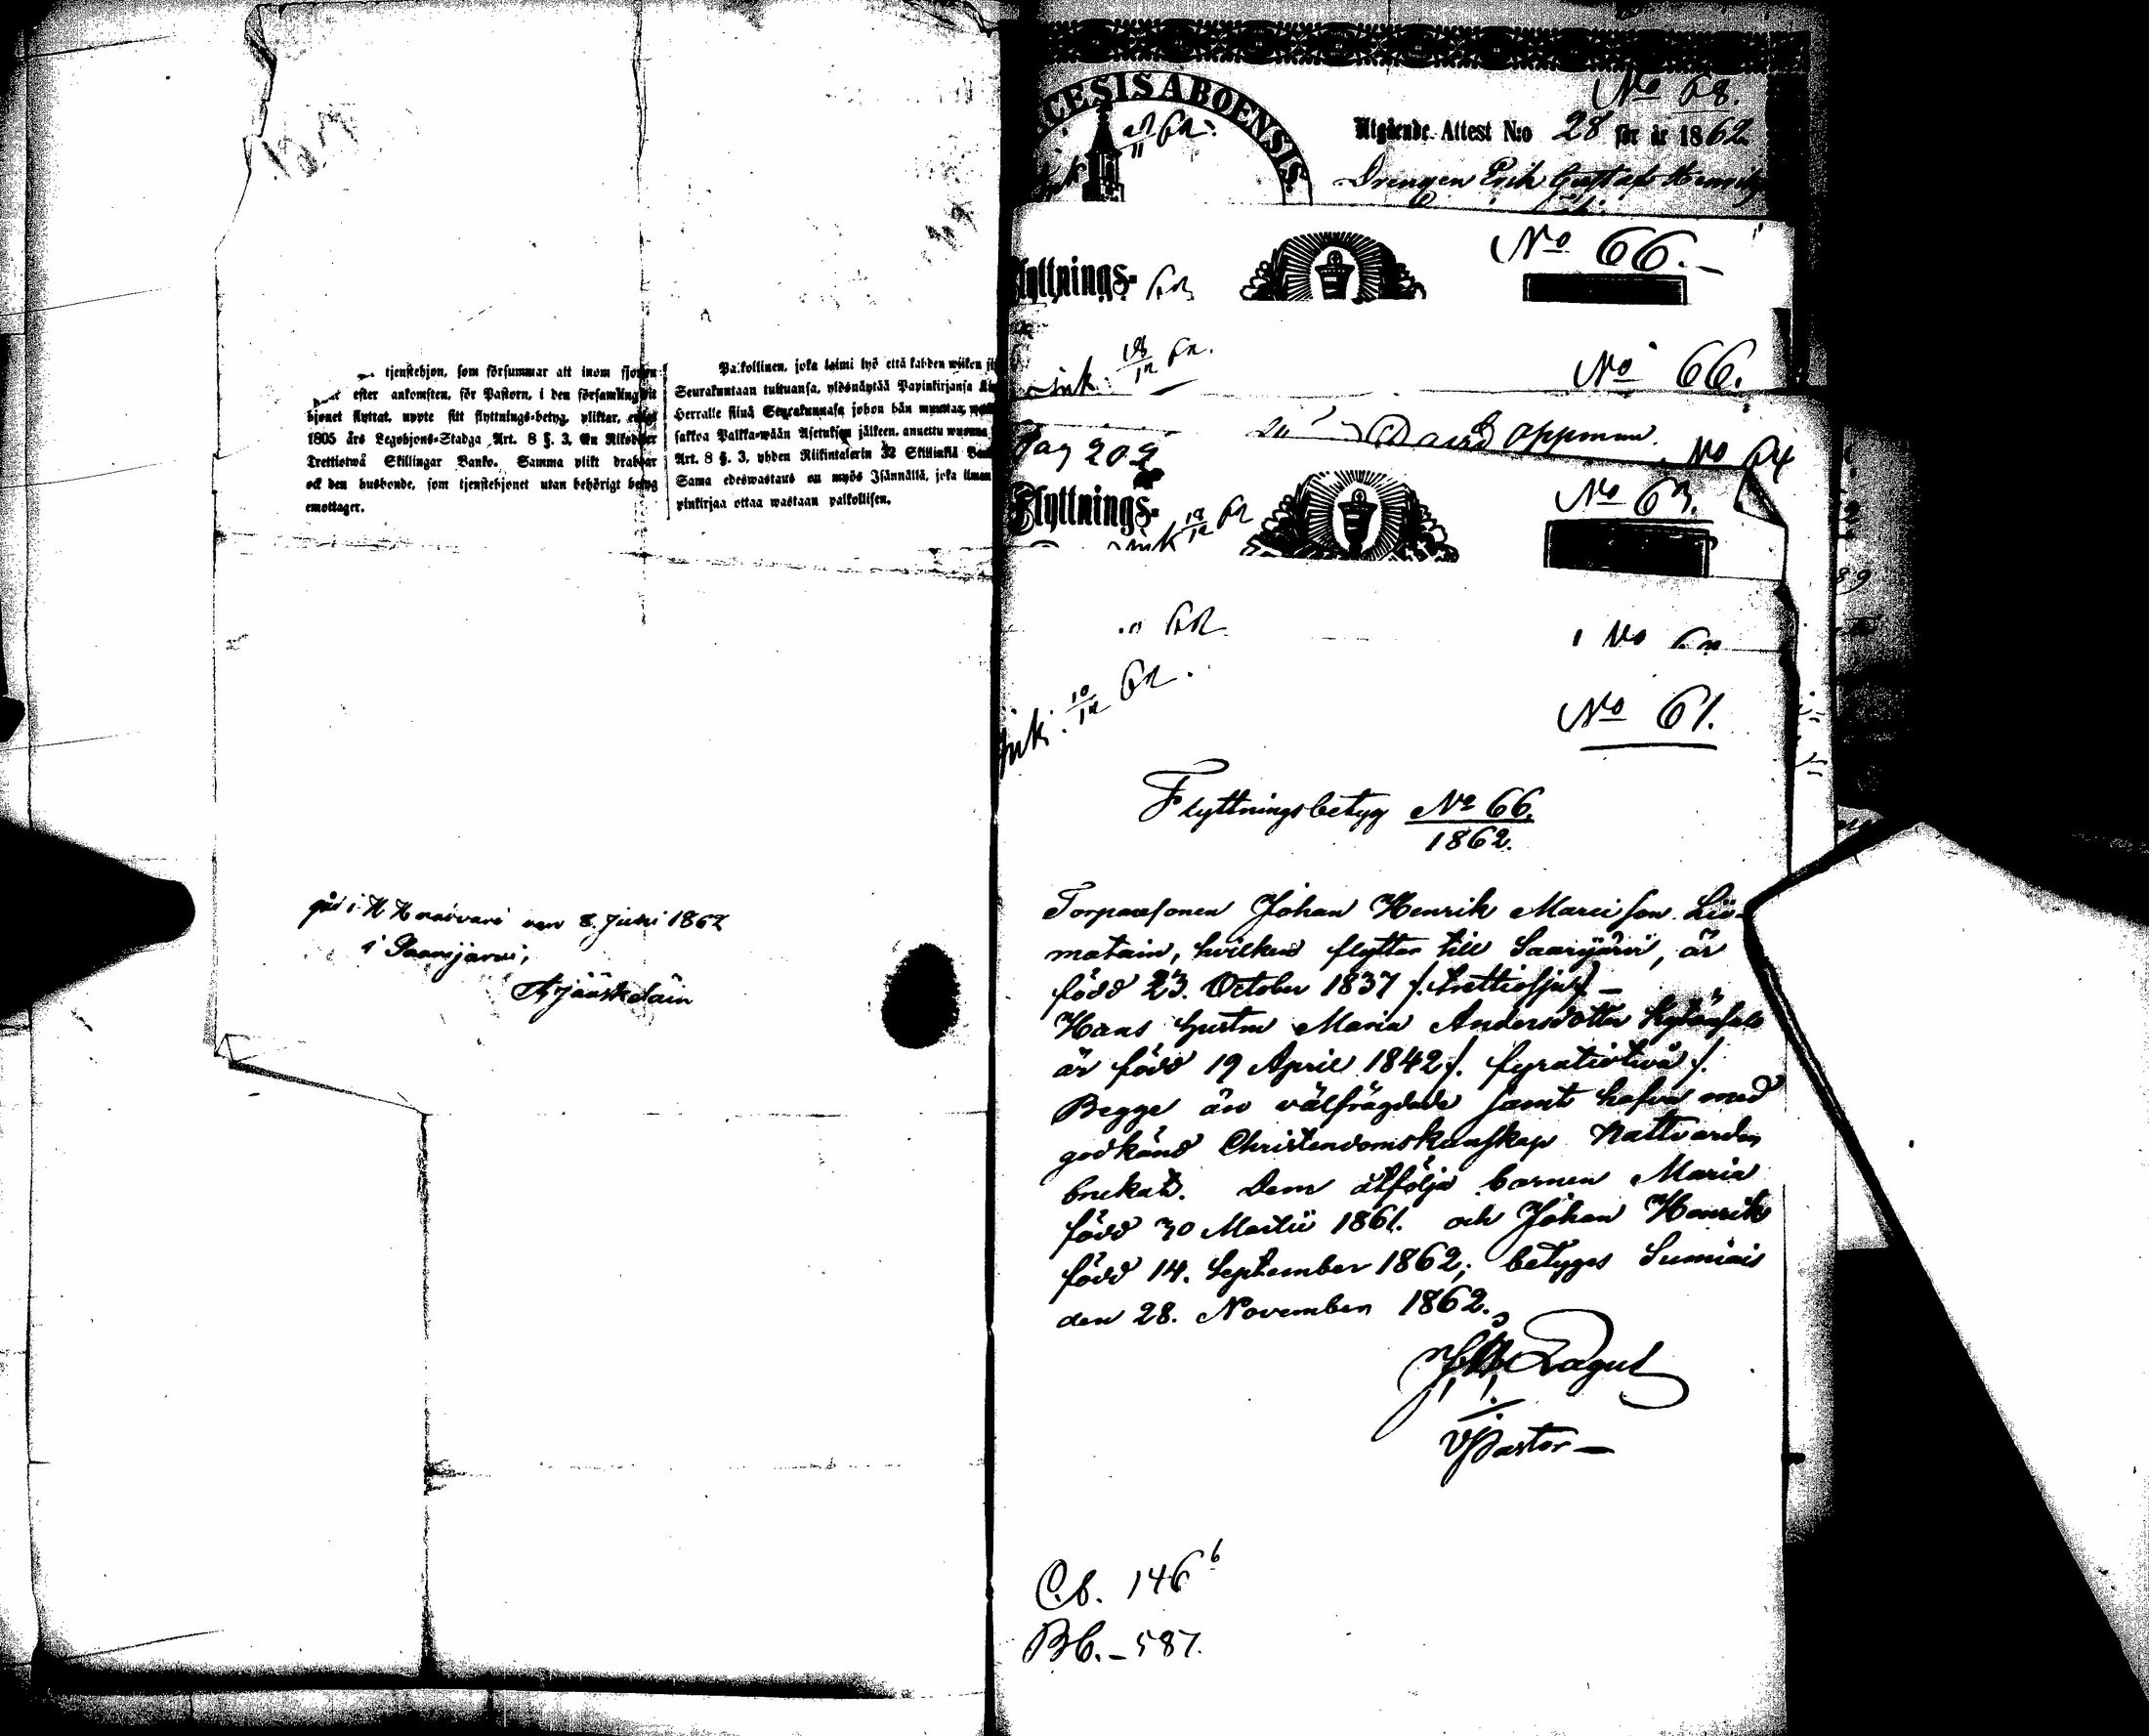 tjenstehjon, som försummar att inom fjorton
efter ankomsten, för Pastorn, i den församling dit
hjonet flyttat, uppte sitt flyttnings-betyg, pliktar, enligt
1805 års Legohjons-Stadga Art. 8 §. 3, En Riksdaler
Trettiotwå Skillingar Banko. Samma plikt drabbar
ock den husbonde, som tjenstehjonet utan behörigt betyg
emottager.
Palkollinen, joka laimi lyö että kahden wiikon
Seurakuntaan tultuansa, ylösnäytää Papinkirjansa
Herralle siinä Seurakunnasa johon hän muuttaa,
sakkoa Palkka-wään Asetuksen jälkeen, annettu wuonna
Art. 8 §. 3, yhden Riikintalerin 32 Skillinkiä
Sama edeswastaus on myös Isännällä, joka ilman
pinkirjaa ottaa wastaan palkollisen.
den 8. Juni 1862
i Saarijärvi,
Jääskeläin
CESIS ABOENSIS.
No 68.
Utgående Attest N:o 28 för år 1862
Drengen Erik Gustaf
No 66.
Flyttnings-
No 66.
ink.
Pag 209
David Oppman. No 64
Flyttnings-
No 63.
ink 62
62
No
ink. 10/12 62.
No 61.
Flyttningsbetyg No 66.
1862.
Torparesonen Johan Henrik Marcison Lii-
matain, hvilken flyttar till Saarijärvi, är
född 23. October 1837 /. trettiosju /. —
Hans hustru Maria Andersdotter
är född 19 April 1842 /. fyratiotvå /.
Begge äro välfrägdade samt hafva med
godkänd Christendomskunskap Nattvarden
brukat. Dem åtfölja barnen Maria
född 30 Martii 1861. och Johan Henrik
född 14. September 1862; betyges Sumiais
den 28. November 1862.
Lagus
V Pastor —
C.b. 146 b
Bb. — 587.